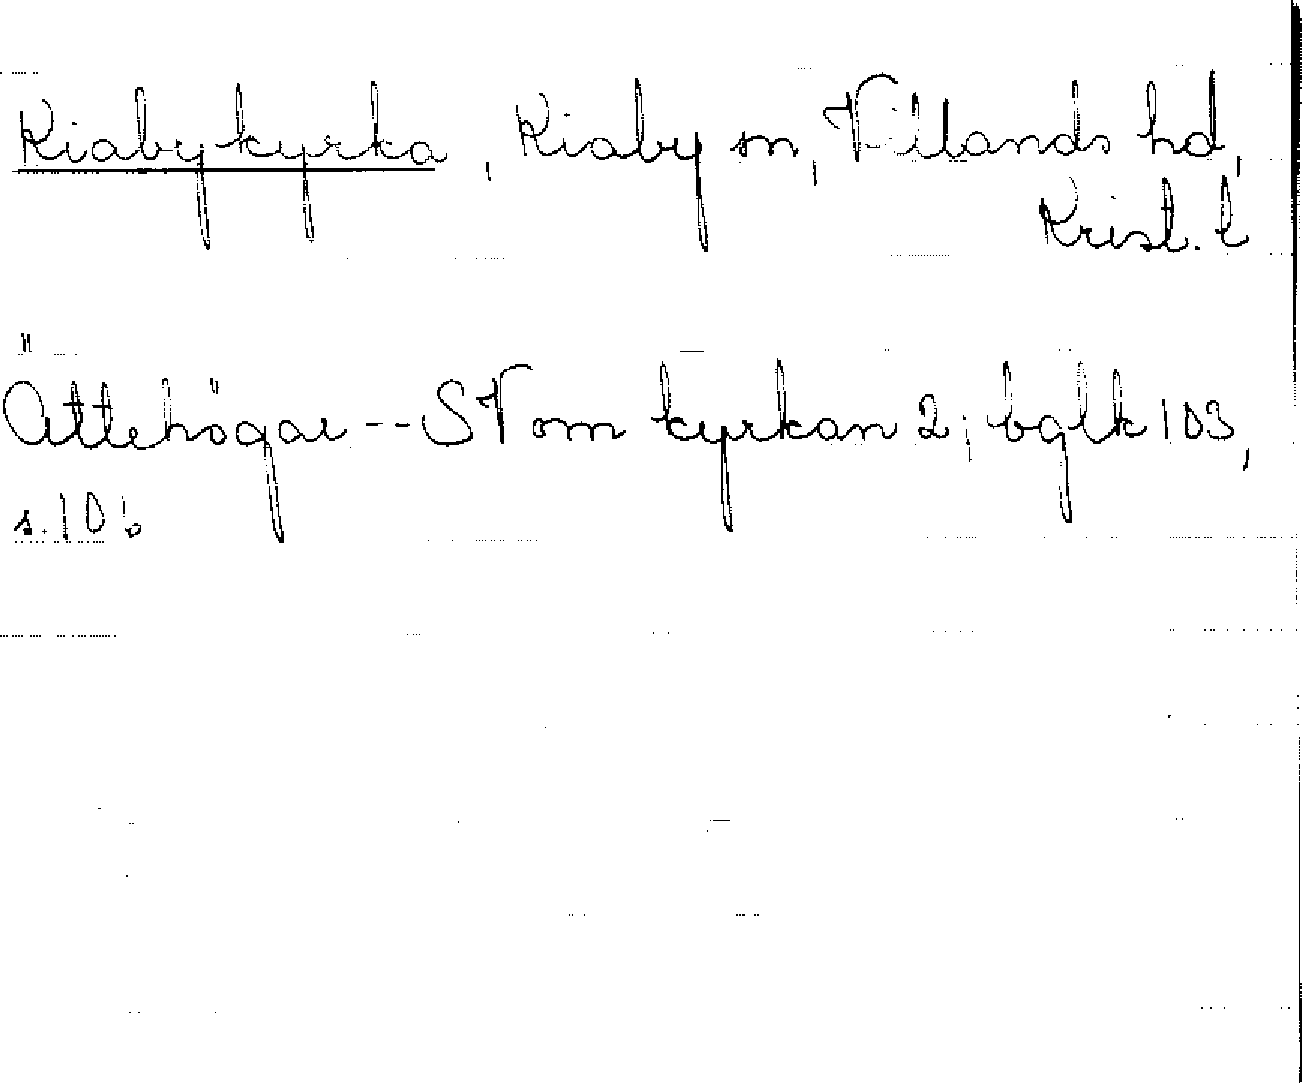 Kiaby kyrka, Kiaby sn, Villands hd,
Krist. l
Ättehögar -- SV om kyrkan 2; bglk 103,
s. 10.